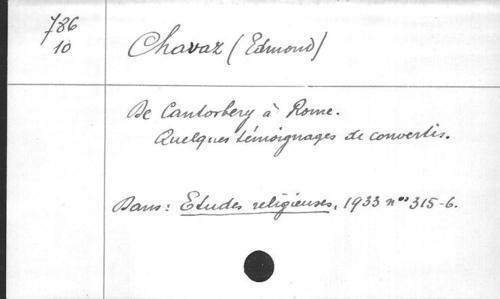 786
10
Chavaz (Edmond)
De Cantorbery à Rome.
Quelques témoignages de convertis.
Dans: Etudes religieuses, 1933 nos 315-6.